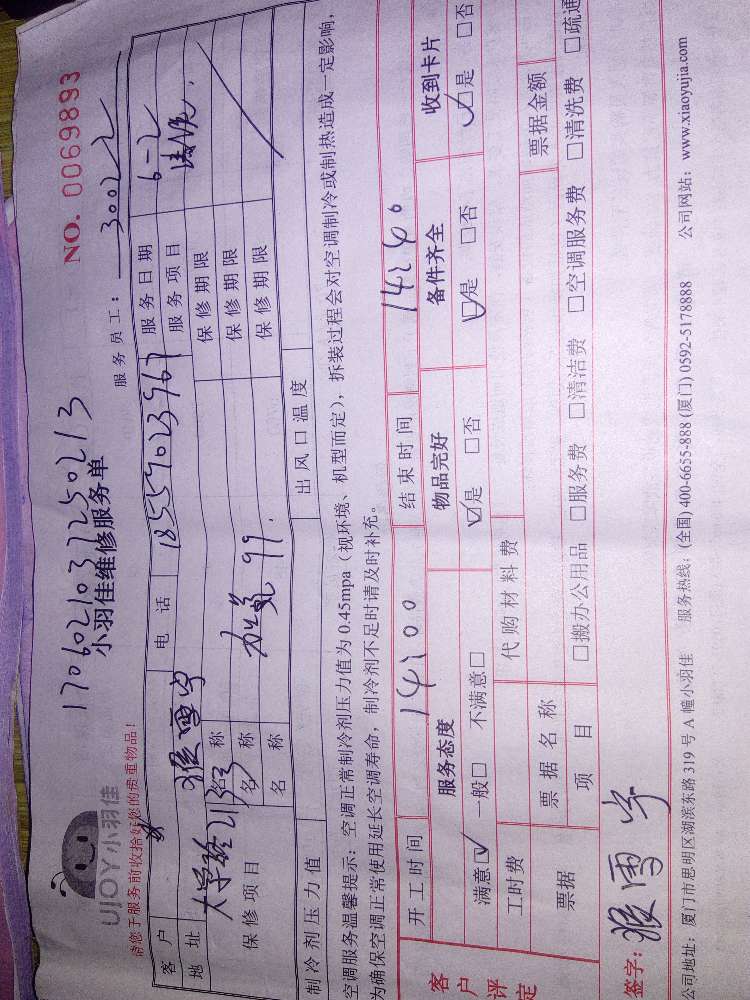 NO. 0069893
17060210372502 13
UJOY小羽佳
小羽佳维修服务单
服务员工：30022
请您于服务前收拾好您的贵重物品！
客户 电话 18557023967 服务日期 6-2
地址 大学路 服务项目
保修项目 名称 保修期限
名称 加氟99. 保修期限
名称 保修期限
制冷剂压力值 出风口温度
空调服务温馨提示：空调正常制冷剂压力值为0.45mpa（视环境、机型而定），拆装过程会对空调制冷或制热造成一定影响，
为确保空调正常使用延长空调寿命，制冷剂不足时请及时补充。
客户评定
开工时间 14:00 结束时间 14:40
服务态度 物品完好 备件齐全 收到卡片
满意☑ 一般□ 不满意□ ☑是 □否 ☑是 □否 ☑是 □否
工时费 代购材料费
票据 票据名称 票据金额
项目 □搬办公用品 □服务费 □清洁费 □空调服务费 □清洗费 □疏通
签字：
公司地址：厦门市思明区湖滨东路319号A幢小羽佳 服务热线：(全国) 400-6655-888 (厦门) 0592-5178888 公司网站：www.xiaoyujia.com